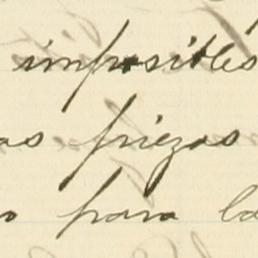 imposibles
as piezas
o para la